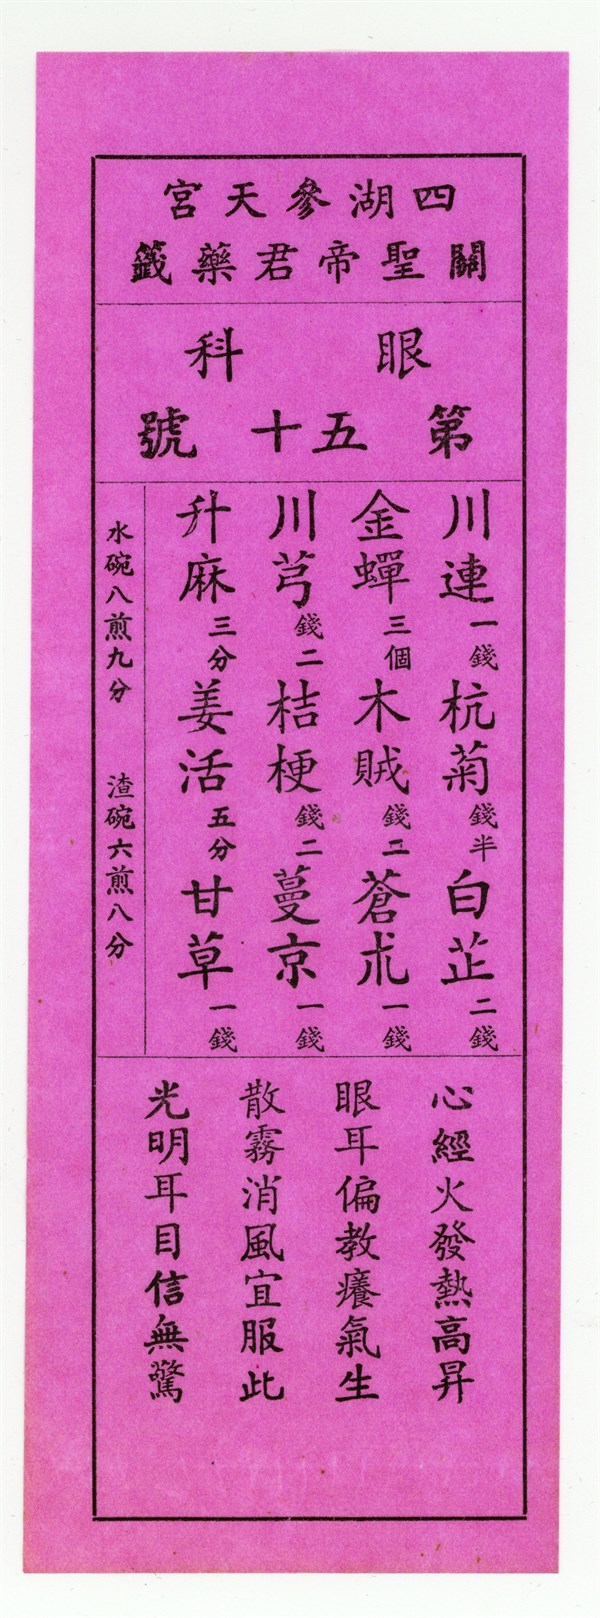 四湖參天宮
關聖帝君藥籤
眼科
第五十號
川連一錢 杭菊錢半 白芷二錢
金蟬三個 木賊錢二 蒼朮一錢
川芎錢二 桔梗錢二 蔓京一錢
升麻三分 姜活五分 甘草一錢
水碗八煎九分 渣碗六煎八分
心經火發熱高昇
眼耳偏教癢氣生
散霧消風宜服此
光明耳目信無驚